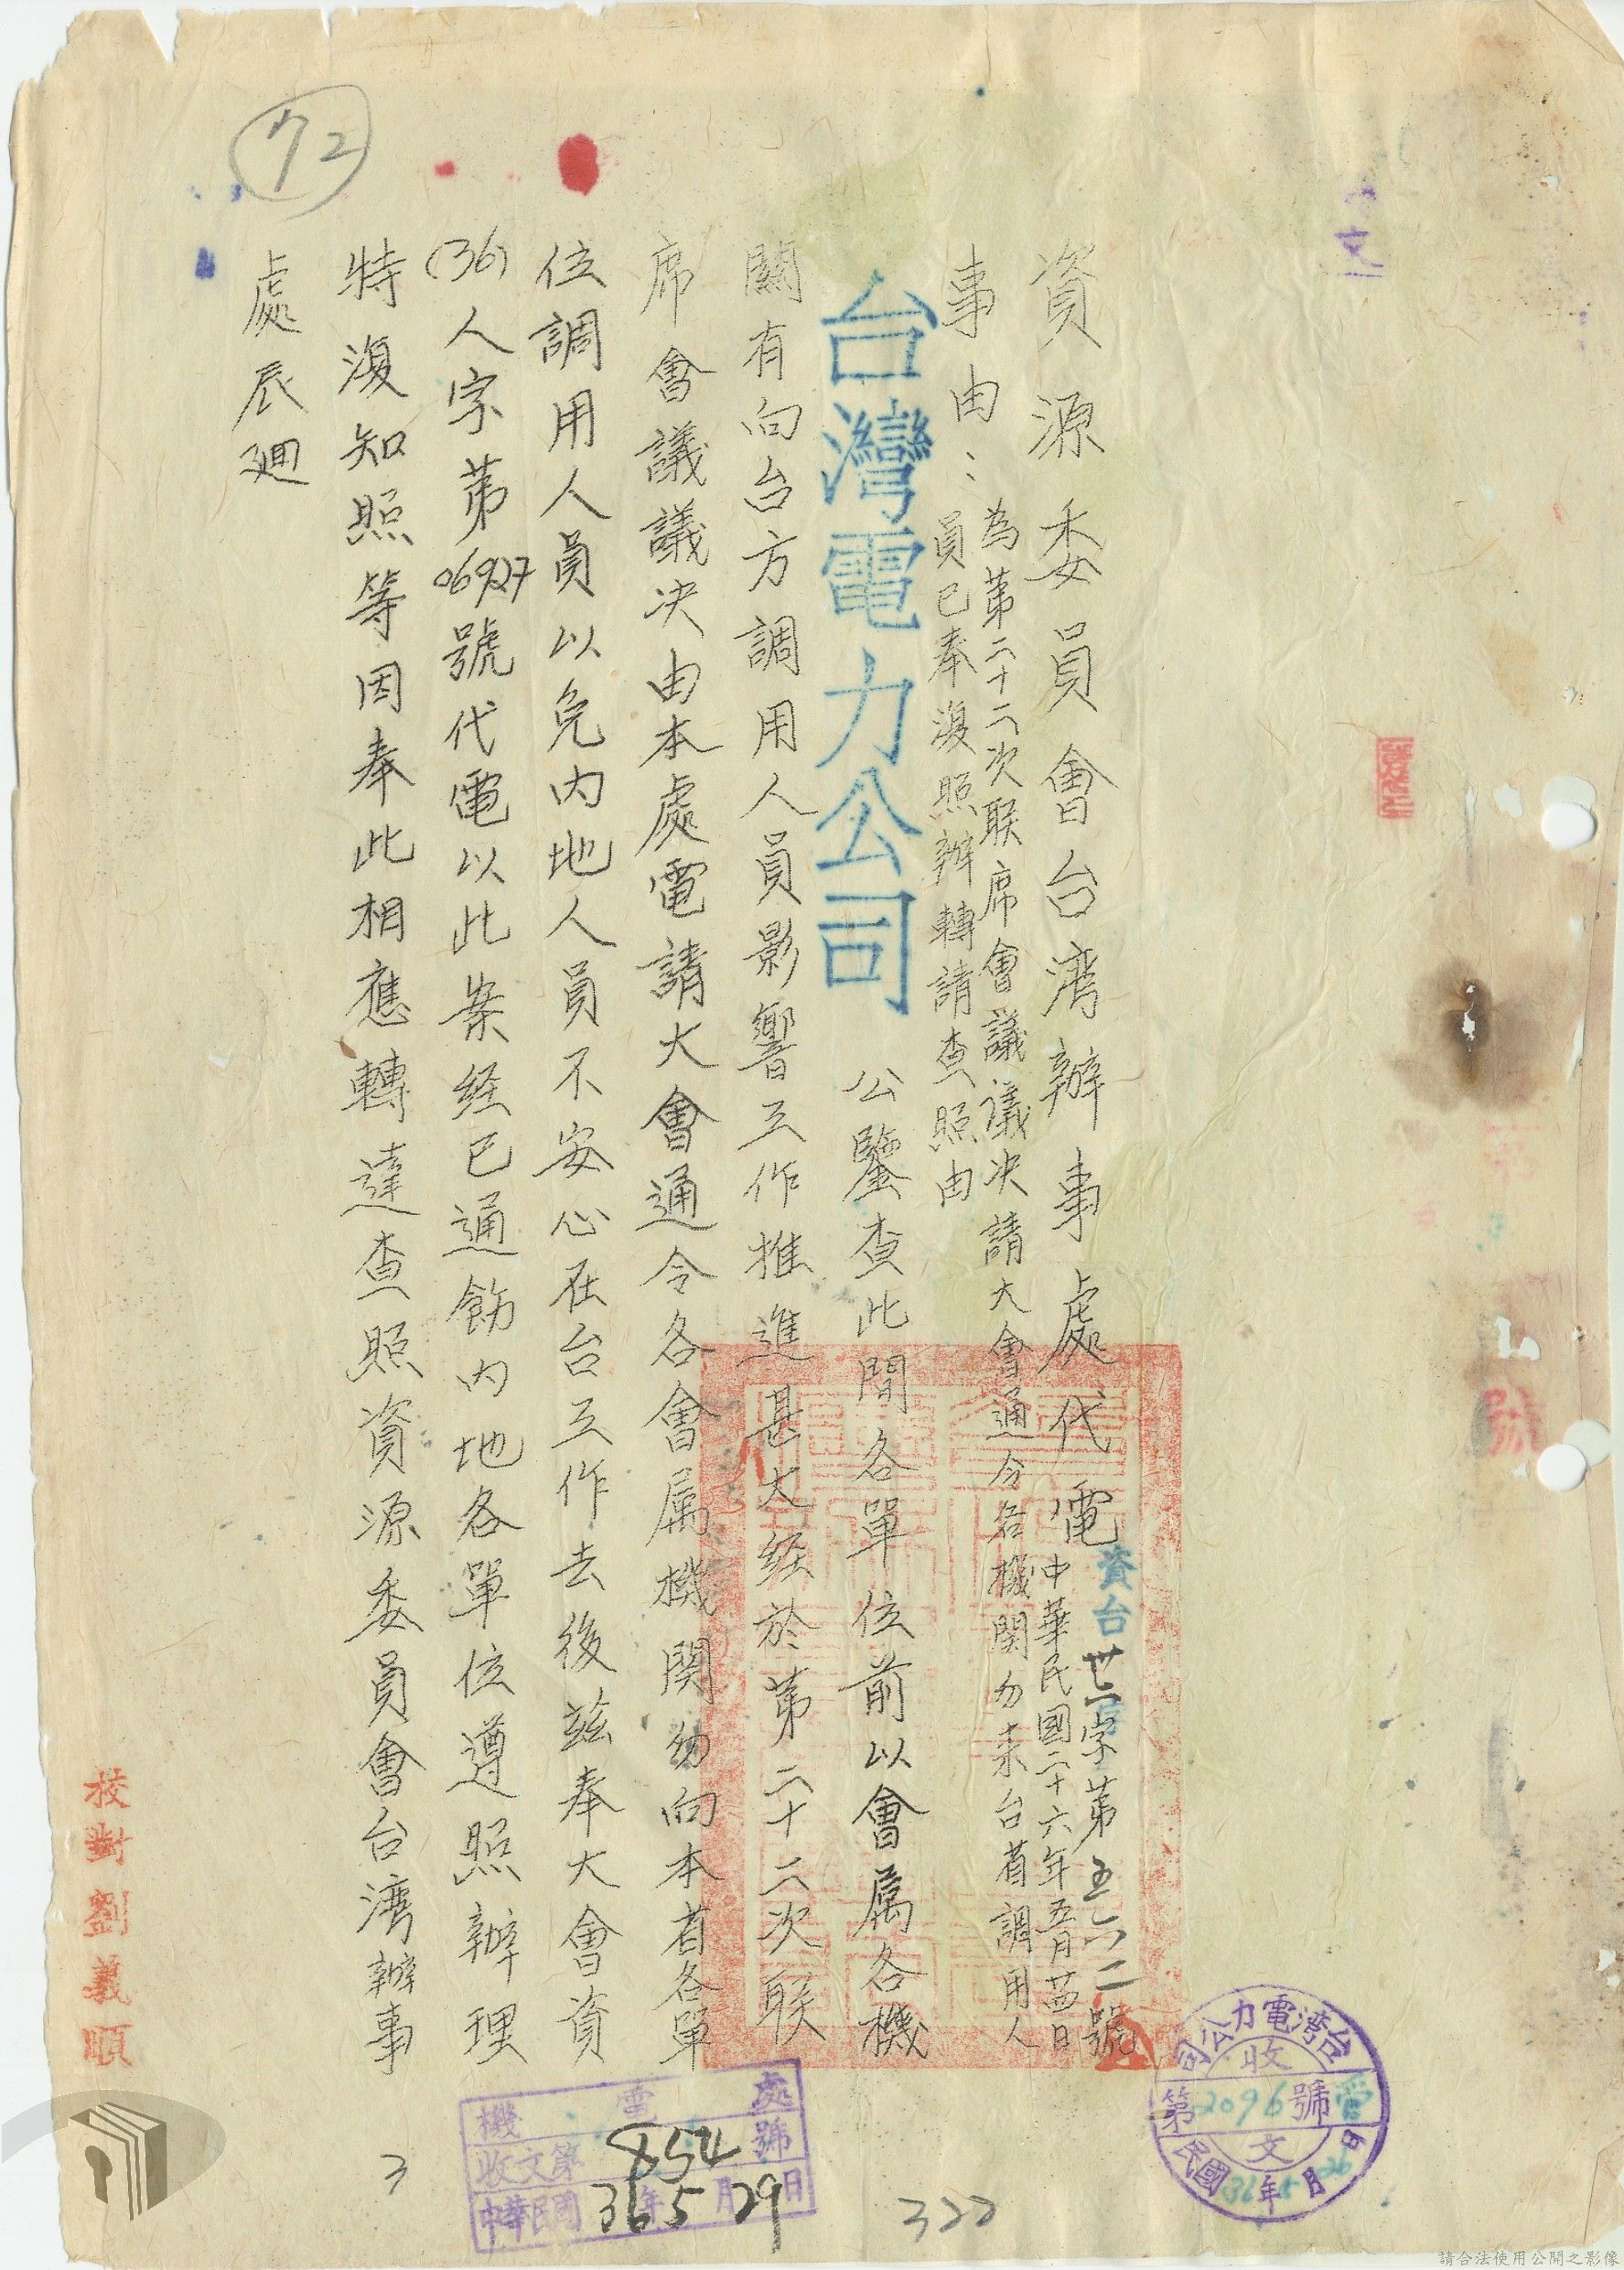 資源委員會台湾辦事處代電
資台卅六字第五六二號
中華民國三十六年五月廿四日
事由：為第二十二次联席會議議决請大會通令各機関勿來台省調用人
員已奉復照辦轉請查照由
台灣電力公司 公鑒查此間各單位前以會属各機
關有向台方調用人員影響工作推進甚大经於第二十二次联
席會議議决由本處電請大會通令各會属機関勿向本省各單
位調用人員以免内地人員不安心在台工作去後茲奉大會資
(36)人字第06927號代電以此案经已通飭内地各單位遵照辦理
特復知照等因奉此相應轉達查照資源委員會台湾辦事
處辰迴
72
文
號
校對劉義順
台湾電力公司
收文
第2096號
民國36年5月26日
機電處
收文第854號
中華民國36年5月29日
322
3
請合法使用公開之影像